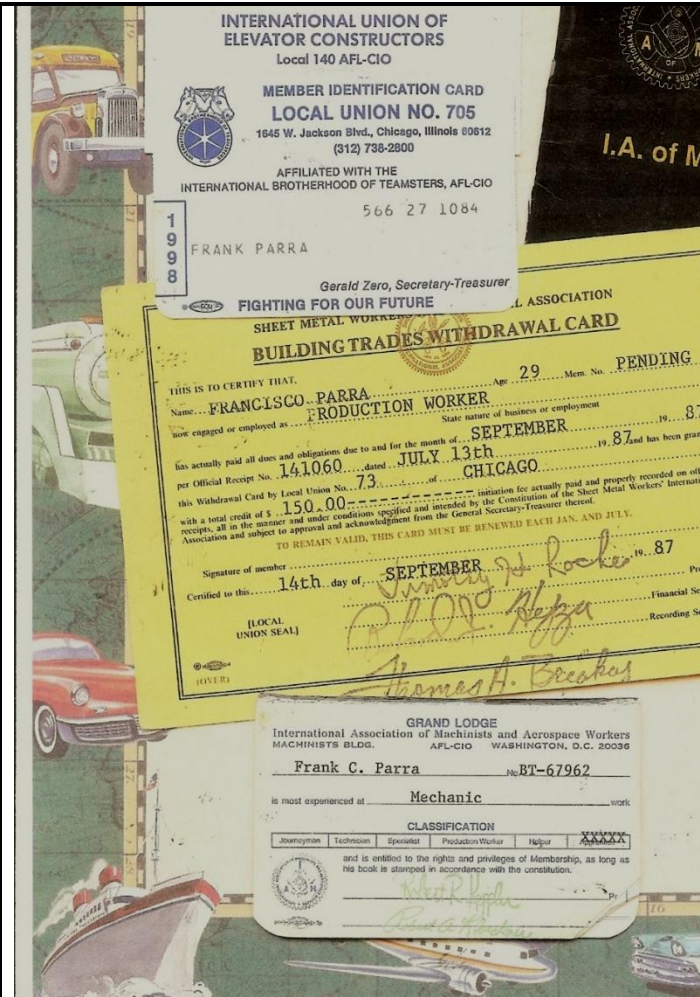 INTERNATIONAL UNION OF
ELEVATOR CONSTRUCTORS
Local 140 AFL-CIO
MEMBER IDENTIFICATION CARD
LOCAL UNION NO. 705
1645 W. Jackson Blvd., Chicago, Illinois 60612
(312) 738-2800
AFFILIATED WITH THE
INTERNATIONAL BROTHERHOOD OF TEAMSTERS, AFL-CIO
566 27 1084
1998
FRANK PARRA
Gerald Zero, Secretary-Treasurer
FIGHTING FOR OUR FUTURE
I.A. of M
SHEET METAL WORKE L ASSOCIATION
BUILDING TRADES WITHDRAWAL CARD
THIS IS TO CERTIFY THAT,
Name FRANCISCO PARRA Age 29 Mem. No. PENDING
now engaged or employed as PRODUCTION WORKER
State nature of business or employment
has actually paid all dues and obligations due to and for the month of SEPTEMBER 19 87
per Official Receipt No. 141060 dated JULY 13th 19 87 and has been gran
this Withdrawal Card by Local Union No. 73 of CHICAGO
with a total credit of $ 150.00 initiation fee actually paid and properly recorded on off
receipts, all in the manner and under conditions specified and intended by the Constitution of the Sheet Metal Workers' Internati
Association and subject to approval and acknowledgment from the General Secretary-Treasurer thereof.
TO REMAIN VALID, THIS CARD MUST BE RENEWED EACH JAN. AND JULY.
Signature of member
Certified to this 14th day of SEPTEMBER 19 87
Timothy H Roche Pr
Financial Se
[LOCAL
UNION SEAL]
Recording Se
Thomas A.
(OVER)
GRAND LODGE
International Association of Machinists and Aerospace Workers
MACHINISTS BLDG. AFL-CIO WASHINGTON, D.C. 20036
Frank C. Parra No BT-67962
is most experienced at Mechanic work
CLASSIFICATION
Journeyman Technician Specialist Production Worker Helper XXXXX
and is entitled to the rights and privileges of Membership, as long as
his book is stamped in accordance with the constitution.
Pr